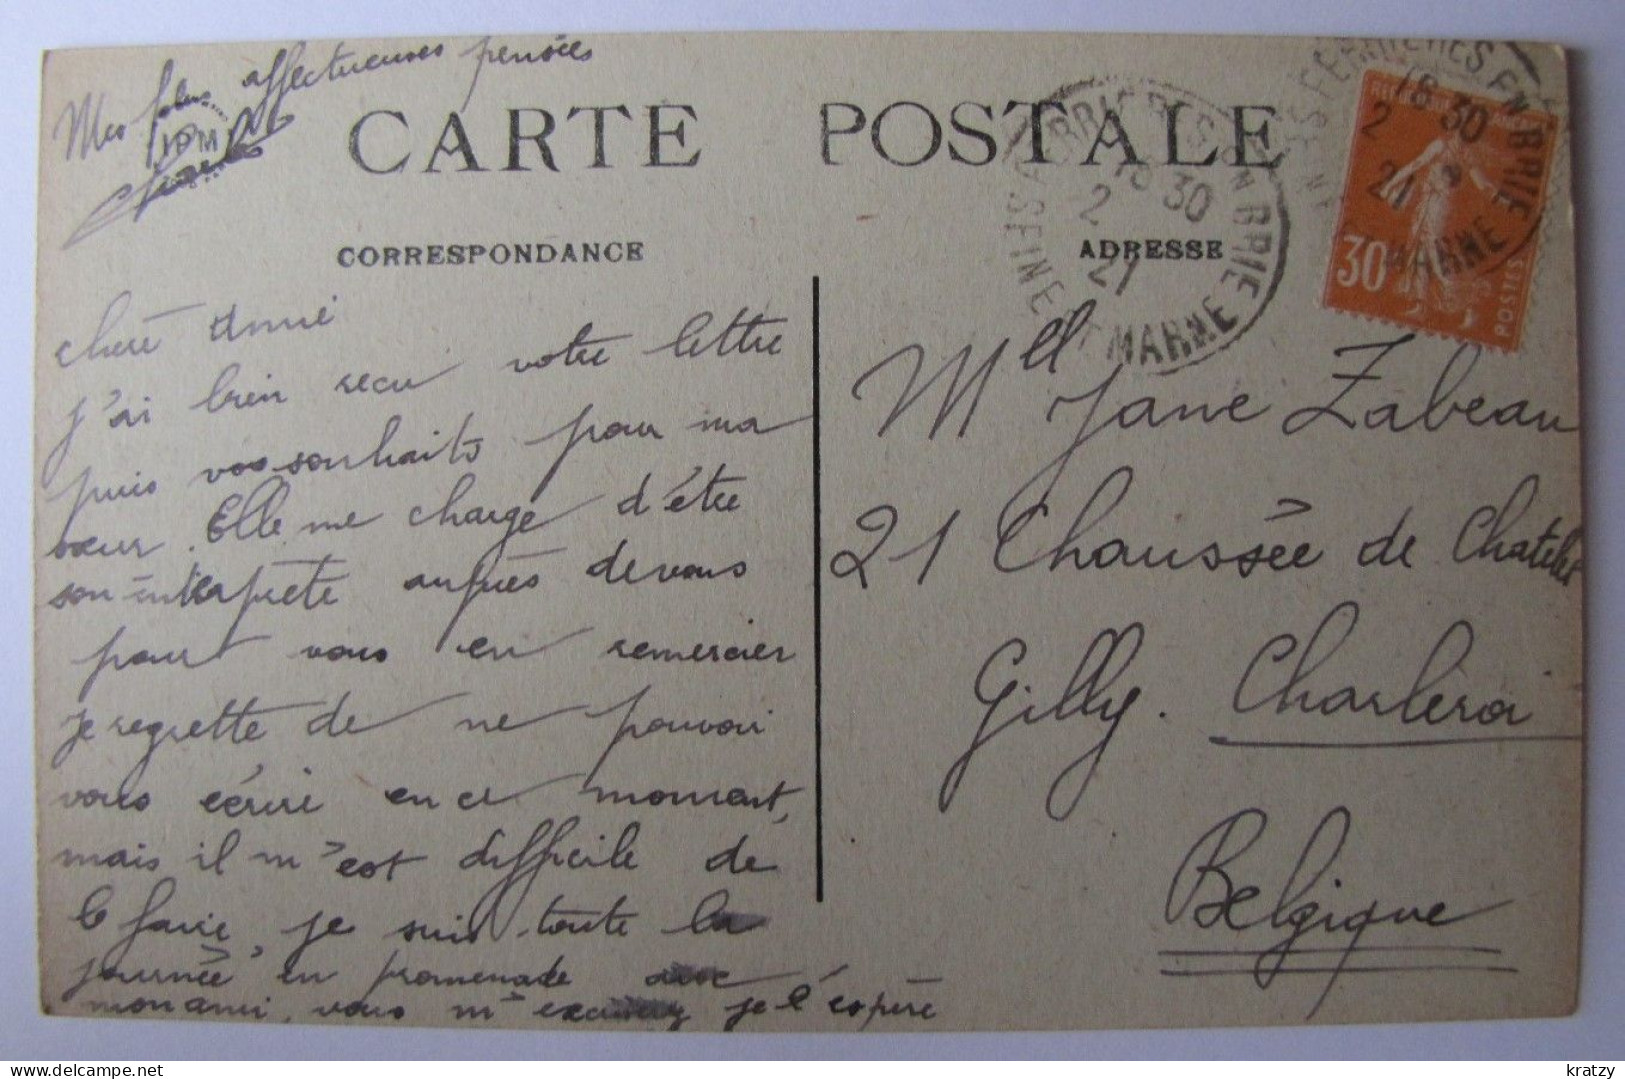 Mes plus affectueuses pensées
CARTE POSTALE
CORRESPONDANCE
ADRESSE
chere Amie
j'ai bien recu votre lettre
puis vos souhaits pour ma
sœur. Elle me charge d'être
son interprète auprès de vous
pour vous en remercier
Je regrette de ne pouvoir
vous écrire en ce moment,
mais il m'est difficile de
le faire, je suis toute la
journée en promenade avec
mon ami, vous m'excuserez je l'espère
Mell Jane Zabeau
21 Chaussée de Chatelet
Gilly. Charleroi
Belgique
FERRIERES EN BRIE
SEINE ET MARNE
18 30
2
21
30
POSTES
kratzy